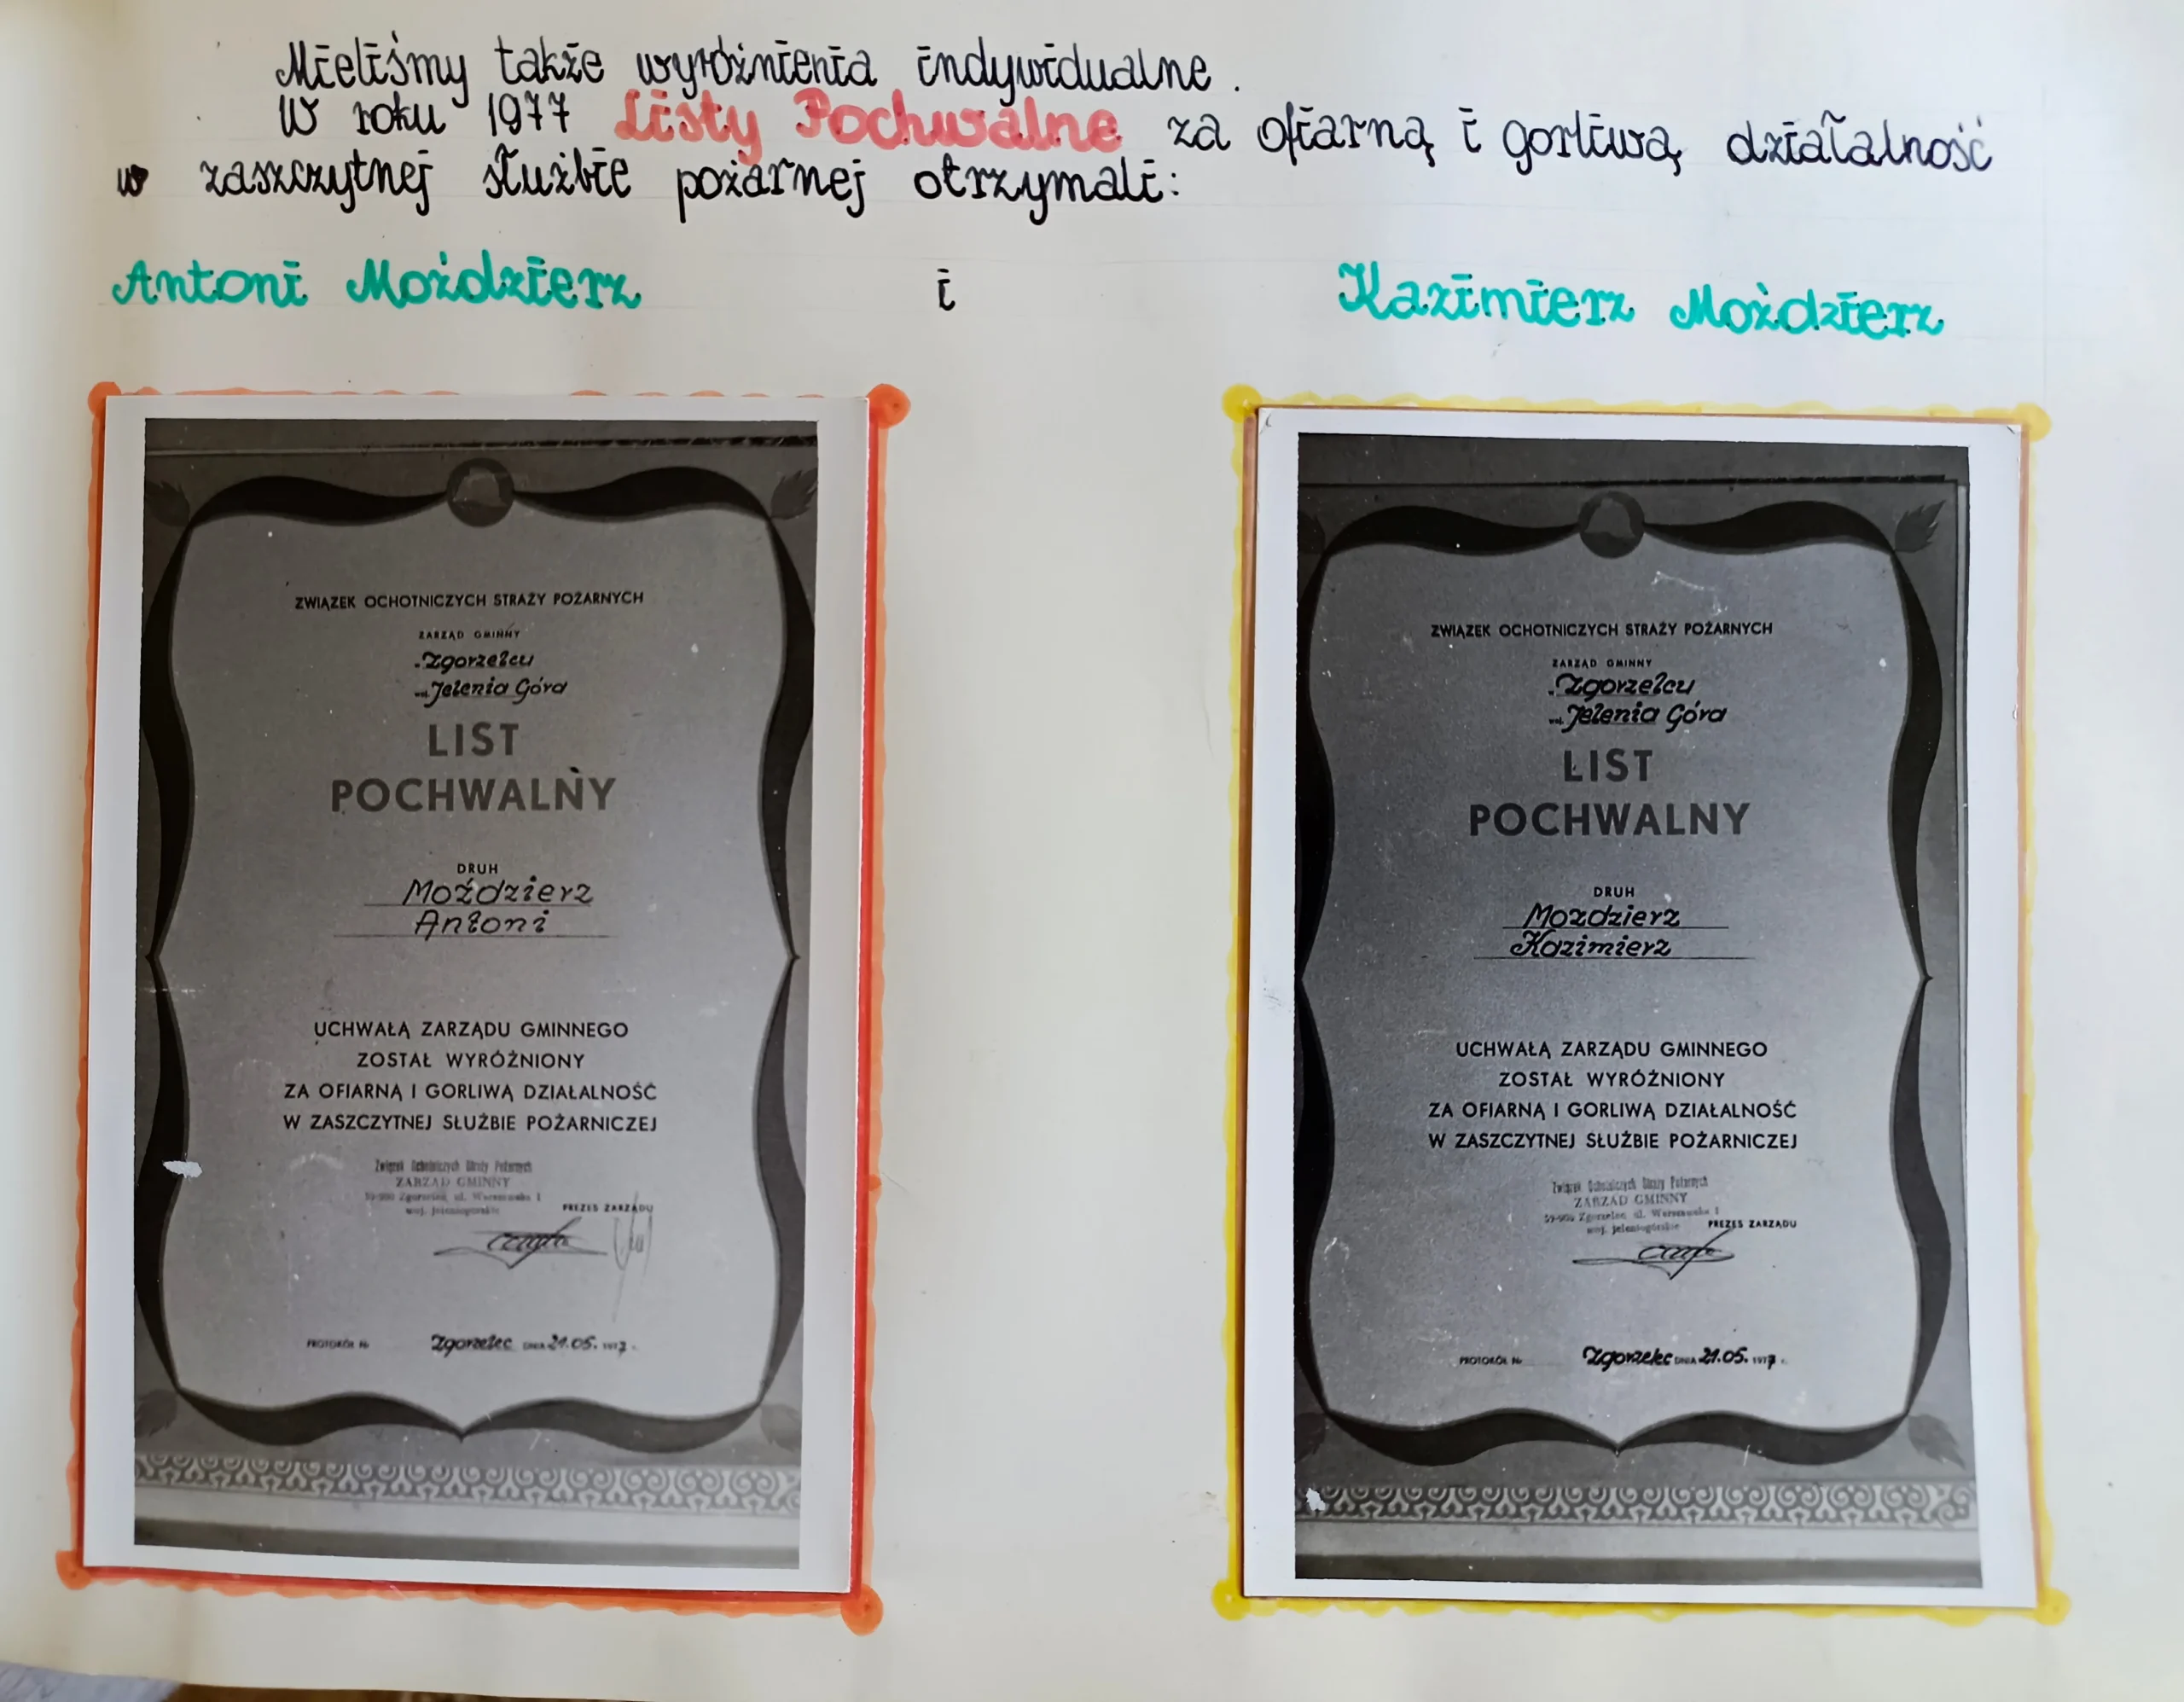 Mieliśmy także wyróżnienia indywidualne.
W roku 1977 Listy Pochwalne za ofiarną i gorliwą działalność
w zaszczytnej służbie pożarnej otrzymali:
Antoni Moździerz i Kazimierz Moździerz
ZWIĄZEK OCHOTNICZYCH STRAŻY POŻARNYCH
ZARZĄD GMINNY
Zgorzelcu
woj. Jelenia Góra
LIST
POCHWALNY
DRUH
Moździerz
Antoni
UCHWAŁĄ ZARZĄDU GMINNEGO
ZOSTAŁ WYRÓŻNIONY
ZA OFIARNĄ I GORLIWĄ DZIAŁALNOŚĆ
W ZASZCZYTNEJ SŁUŻBIE POŻARNICZEJ
Związek Ochotniczych Straży Pożarnych
ZARZĄD GMINNY
59-900 Zgorzelec ul. Warszawska 1
woj. jeleniogórskie
PREZES ZARZĄDU
PROTOKÓŁ Nr Zgorzelec DNIA 21.05. 1977 r.
ZWIĄZEK OCHOTNICZYCH STRAŻY POŻARNYCH
ZARZĄD GMINNY
Zgorzelcu
woj. Jelenia Góra
LIST
POCHWALNY
DRUH
Mozdzierz
Kazimierz
UCHWAŁĄ ZARZĄDU GMINNEGO
ZOSTAŁ WYRÓŻNIONY
ZA OFIARNĄ I GORLIWĄ DZIAŁALNOŚĆ
W ZASZCZYTNEJ SŁUŻBIE POŻARNICZEJ
Związek Ochotniczych Straży Pożarnych
ZARZĄD GMINNY
59-900 Zgorzelec ul. Warszawska 1
woj. jeleniogórskie
PREZES ZARZĄDU
PROTOKÓŁ Nr Zgorzelec DNIA 21.05. 1977 r.